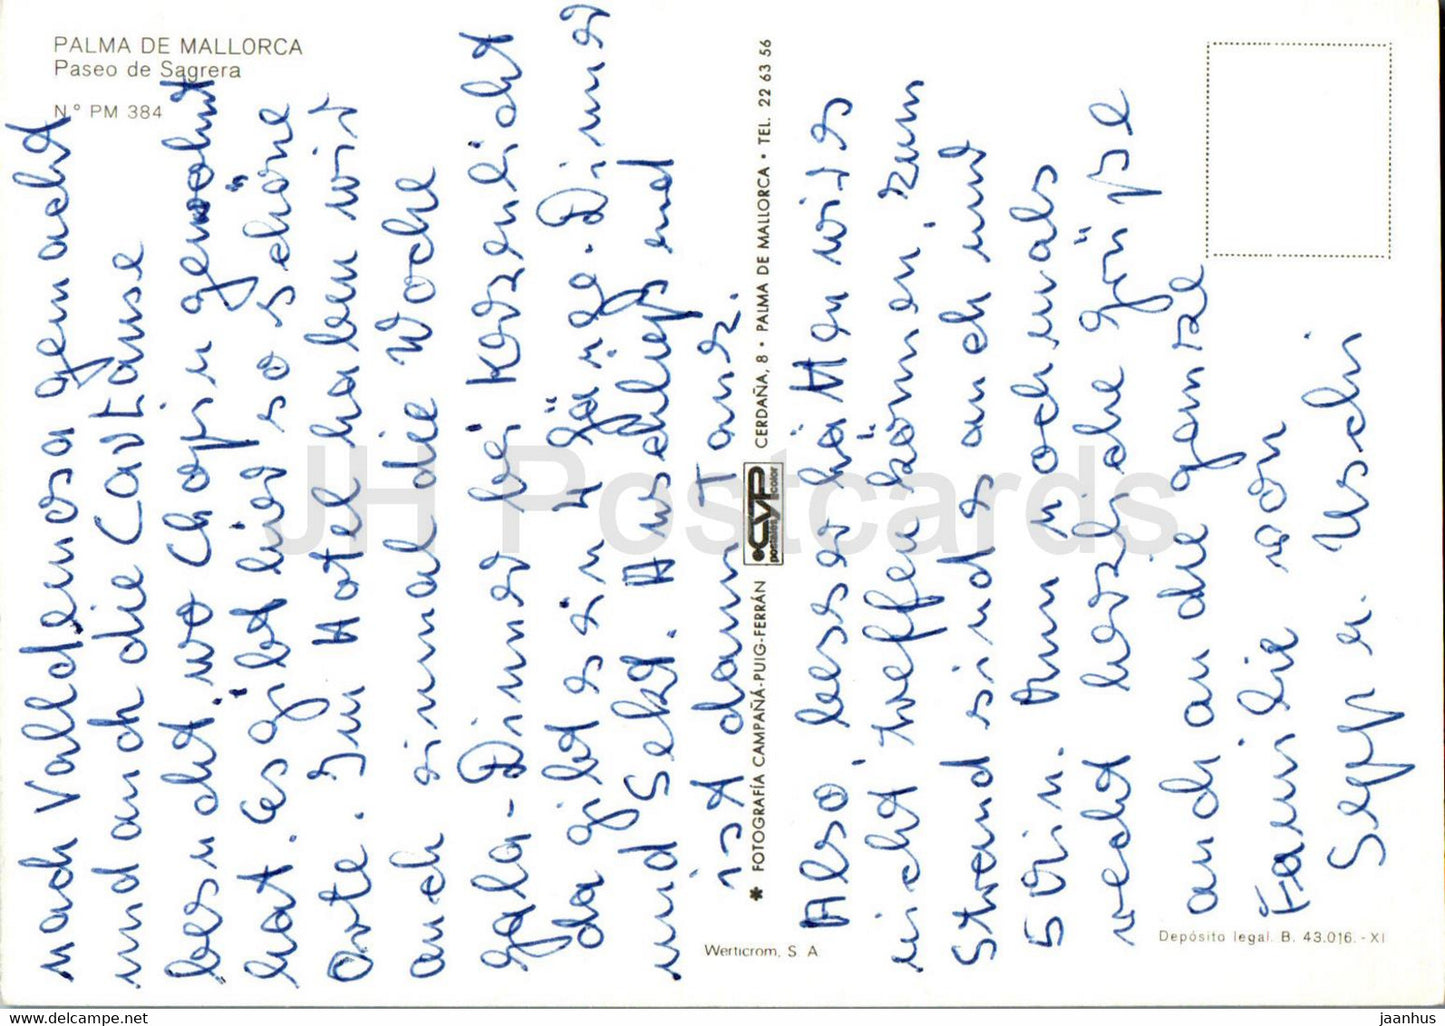 PALMA DE MALLORCA
Paseo de Sagrera
N.º PM 384
nach Valldemosa gemacht
und auch die Cartause
besucht, wo Chopin gewohnt
hat. Es gibt hier so schöne
Orte. Im Hotel haben wir
auch einmal die Woche
Gala-Dinner bei Kerzenlicht
da gibt's ein 4 Gänge-Dinner
und Sekt. Anschließend
ist dann Tanz.
✱ FOTOGRAFÍA CAMPAÑÁ-PUIG-FERRÁN
CYP
postales color
CERDAÑA, 8 • PALMA DE MALLORCA • TEL. 22 63 56
Also, besser hätten wir's
nicht treffen können, zum
Strand sind's auch nur
5 Min. Nun nochmals
recht herzliche Grüße
auch an die ganze
Familie von
Sepp u. Uschi
Werticrom, S A
Depósito legal. B. 43.016.-XI
JH Postcards
www.delcampe.net
jaanhus